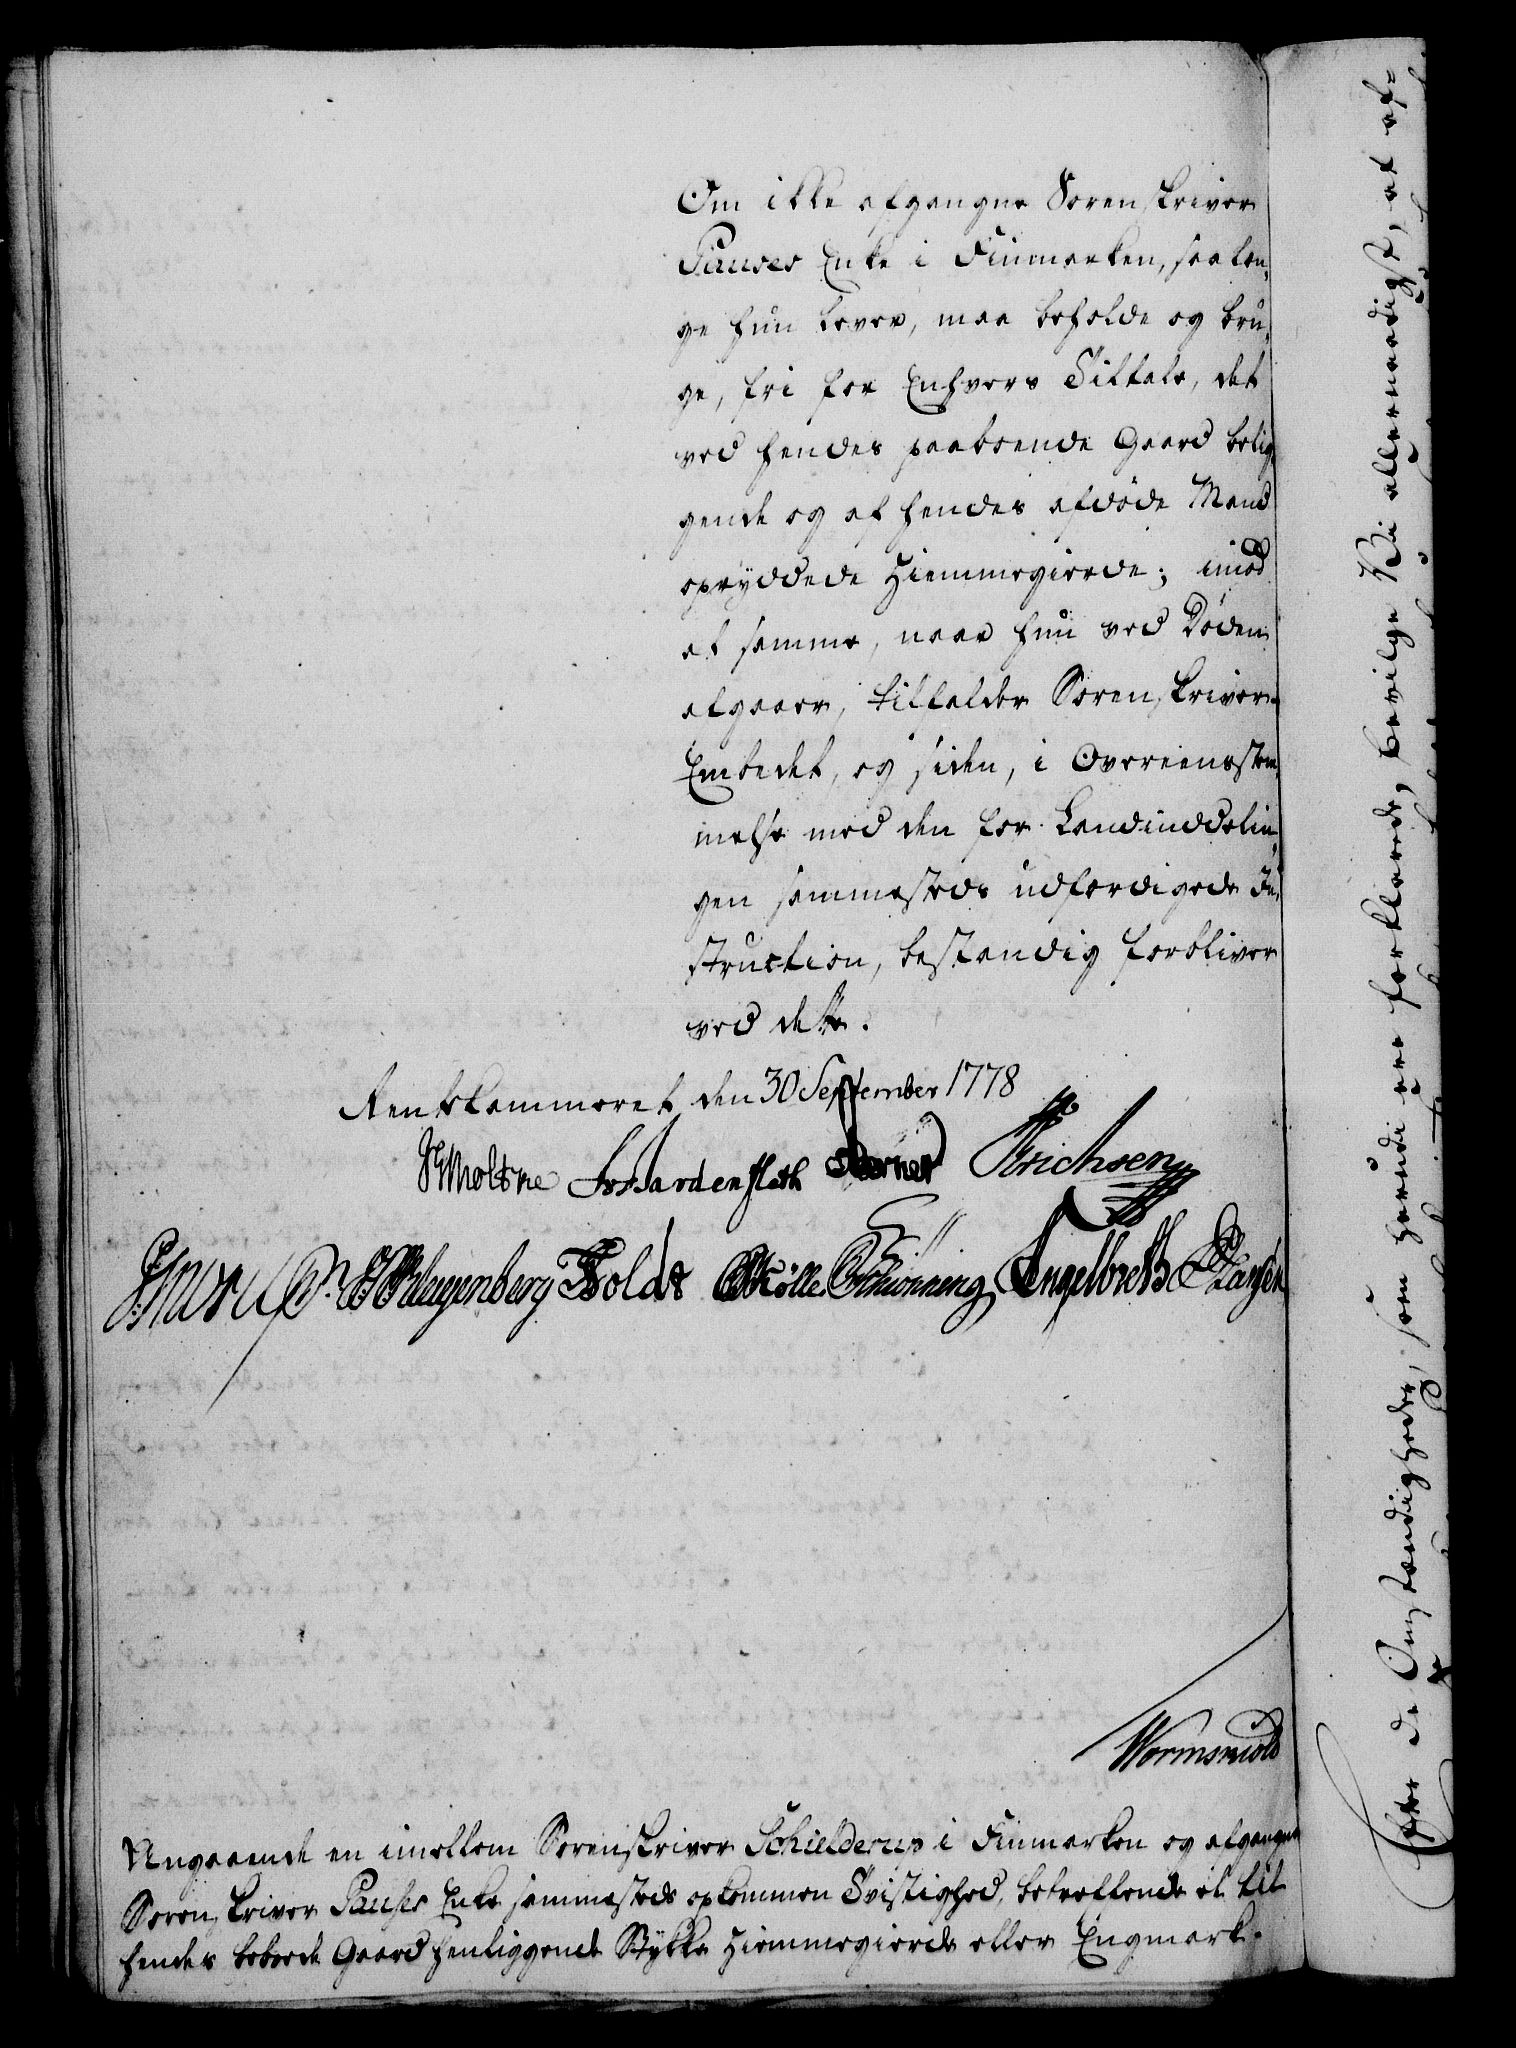 Om ikke afgangne Sorenskriver
Pauses Enke i Finmarken, saalæn,
ge hun lever, maa beholde og bru,
ge, fri for Enhvers Tiltale, det
ved hendes paaboende Gaard belig,
gende og af hendes afdøde Mand
opryddede Hiemmegierde; imod
at samme, naar hun ved Døden
afgaaer, tilfalder Sorenskriver-
Embedet, og siden, i Overeensstem,
melse med den for Landinddelin,
gen sammesteds udfærdigede In,
struction, bestandig forbliver
ved dette.
Rentekammeret den 30 September 1778
Moltke Hardenfleth Erichsen
Klagenberg Holdt Mølle Schiønning Engelbreth
Wormskiold
Angaaende en imellem Sorenskriver Schielderup i Finmarken og afgangne
Sorenskriver Pauses Enke sammesteds opkommen Tvistighed, betreffende et til
hendes beboede Gaard henliggende Stykke Hiemmegierde eller Engmark.
Efter de Omstændigheder, som herudi ere forklarede, bevilge Vi allernaadigst, at af-